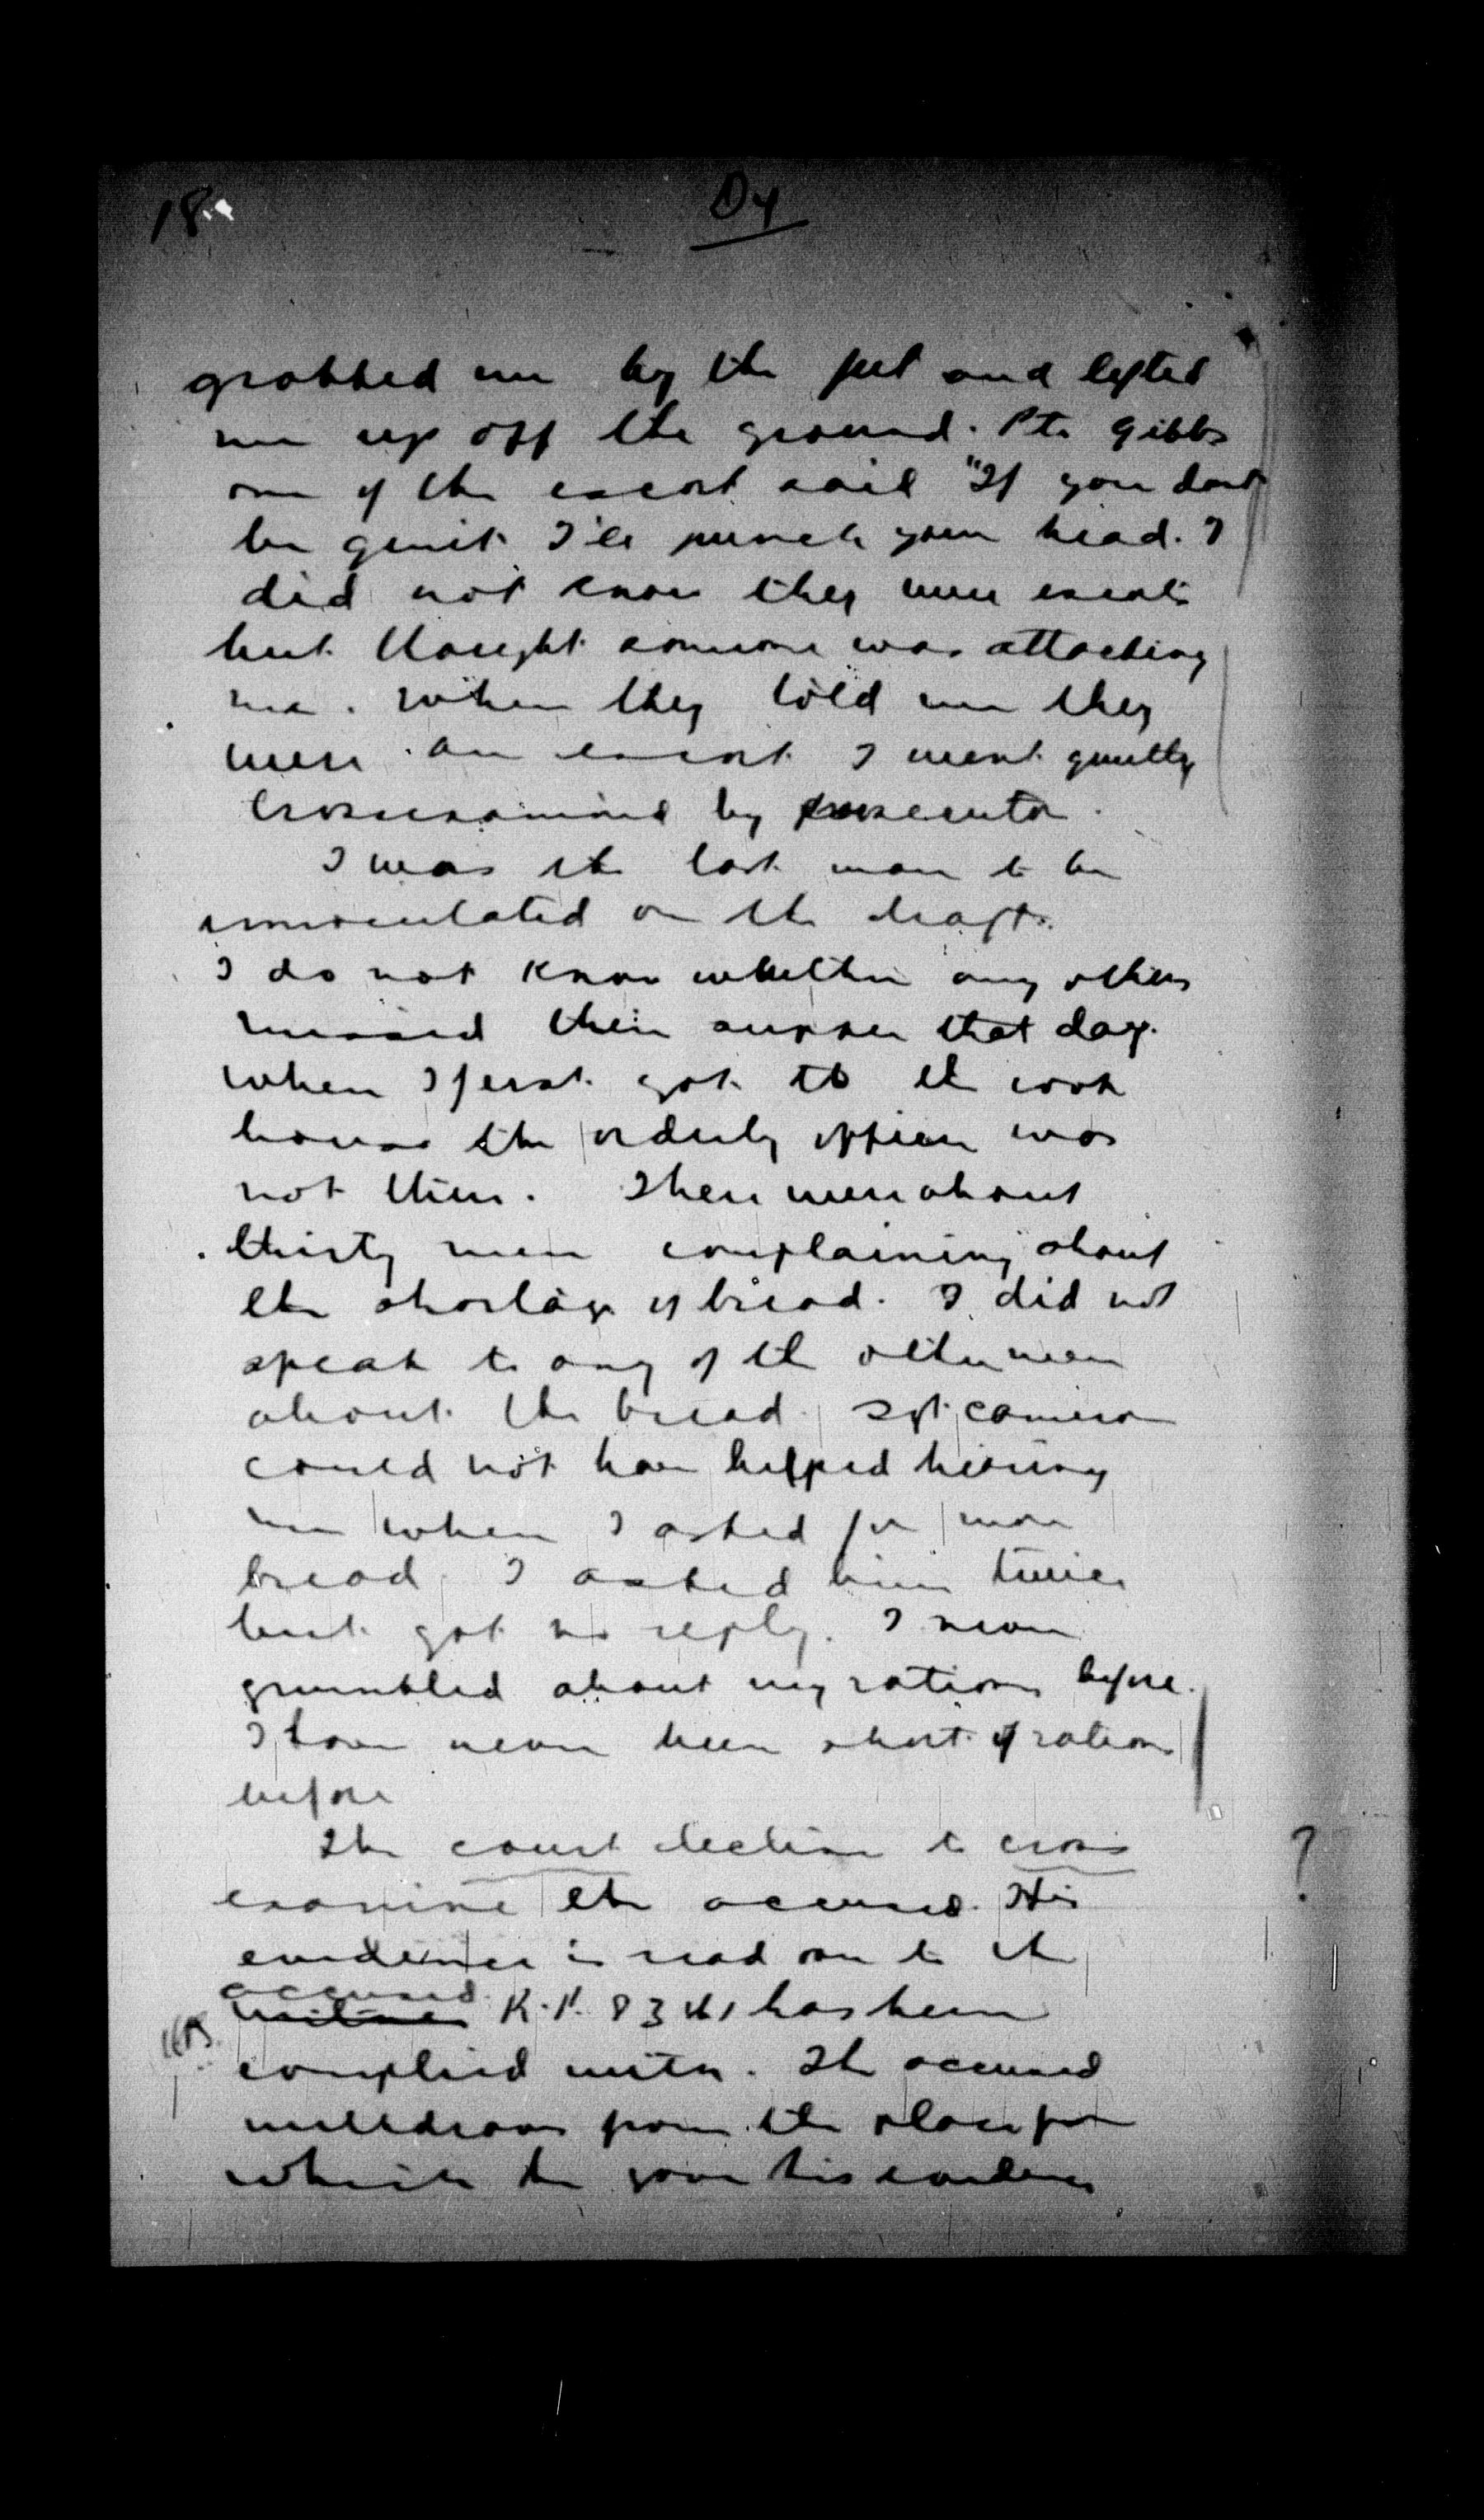 18
D4
grabbed me by the feet and lifted
me up off the ground. Pte Gibbs
one of the escort said "If you dont
be quiet I'll punch your head. I
did not know they were escort
but thought someone was attacking
me. When they told me they
were an escort I went quietly
Crossexamined by prosecutor.
I was the last man to be
innoculated on the draft.
I do not know whether any others
missed their supper that day.
When I first got to the cook
house the orderly officer was
not there. There were about
thirty men complaining about
the shortage of bread. I did not
speak to any of the other men
about the bread. Sgt. Cameron
could not have helped hearing
me when I asked for more
bread. I asked him twice
but got no reply. I never
grumbled about my rations before.
I have never been short of rations
before
The court decline to cross
examine the accused. His
evidence is read over to the
accused
witness R.P. 83 has been
complied with. The accused
withdraws from the place from
which he gave his evidence
?